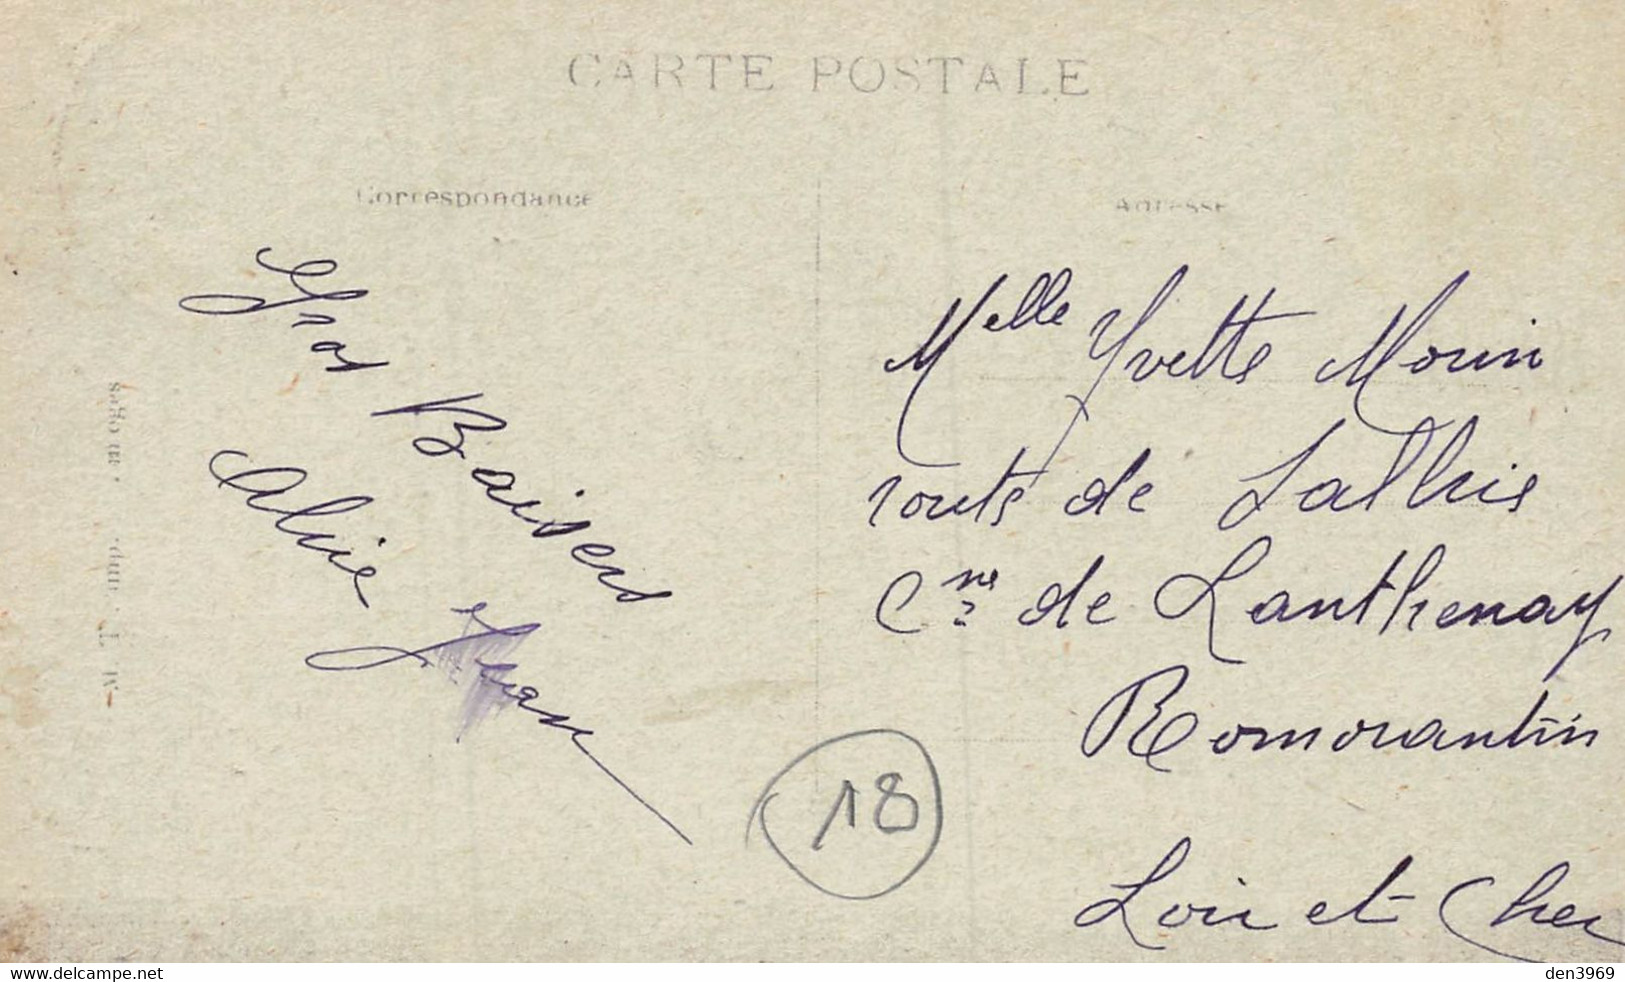 CARTE POSTALE
Correspondance
Adresse
Gros Baisers
Melle Yvette Morin
route de Lathie
Cne de Lanthenay
Romorantin
Loir et Cher
18
www.delcampe.net
den3969